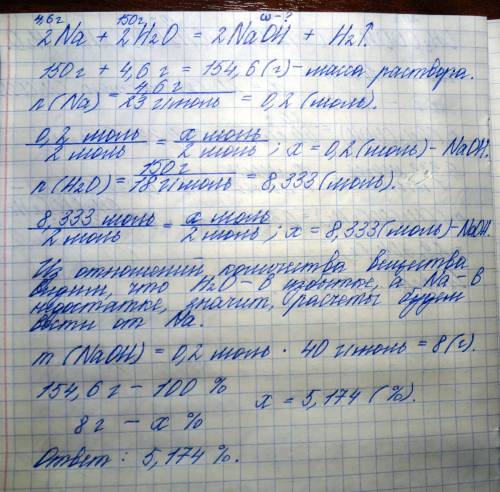 4,6г 150г ω-?
2Na + 2H₂O = 2NaOH + H₂↑.
150г + 4,6г = 154,6(г) - масса раствора.
n(Na) = 4,6г / 23 г/моль = 0,2 (моль).
0,2 моль / 2 моль = x моль / 2 моль ; x = 0,2(моль) - NaOH.
n(H₂O) = 150г / 18 г/моль = 8,333 (моль).
8,333 моль / 2 моль = x моль / 2 моль ; x = 8,333(моль) - NaOH
Из отношений количества вещества
видим, что H₂O - в избытке, а Na - в
недостатке, значит, расчеты будем
вести от Na.
m (NaOH) = 0,2 моль · 40 г/моль = 8(г).
154,6 г - 100 %
x = 5,174 (%).
8 г - x %
Ответ: 5,174 %.